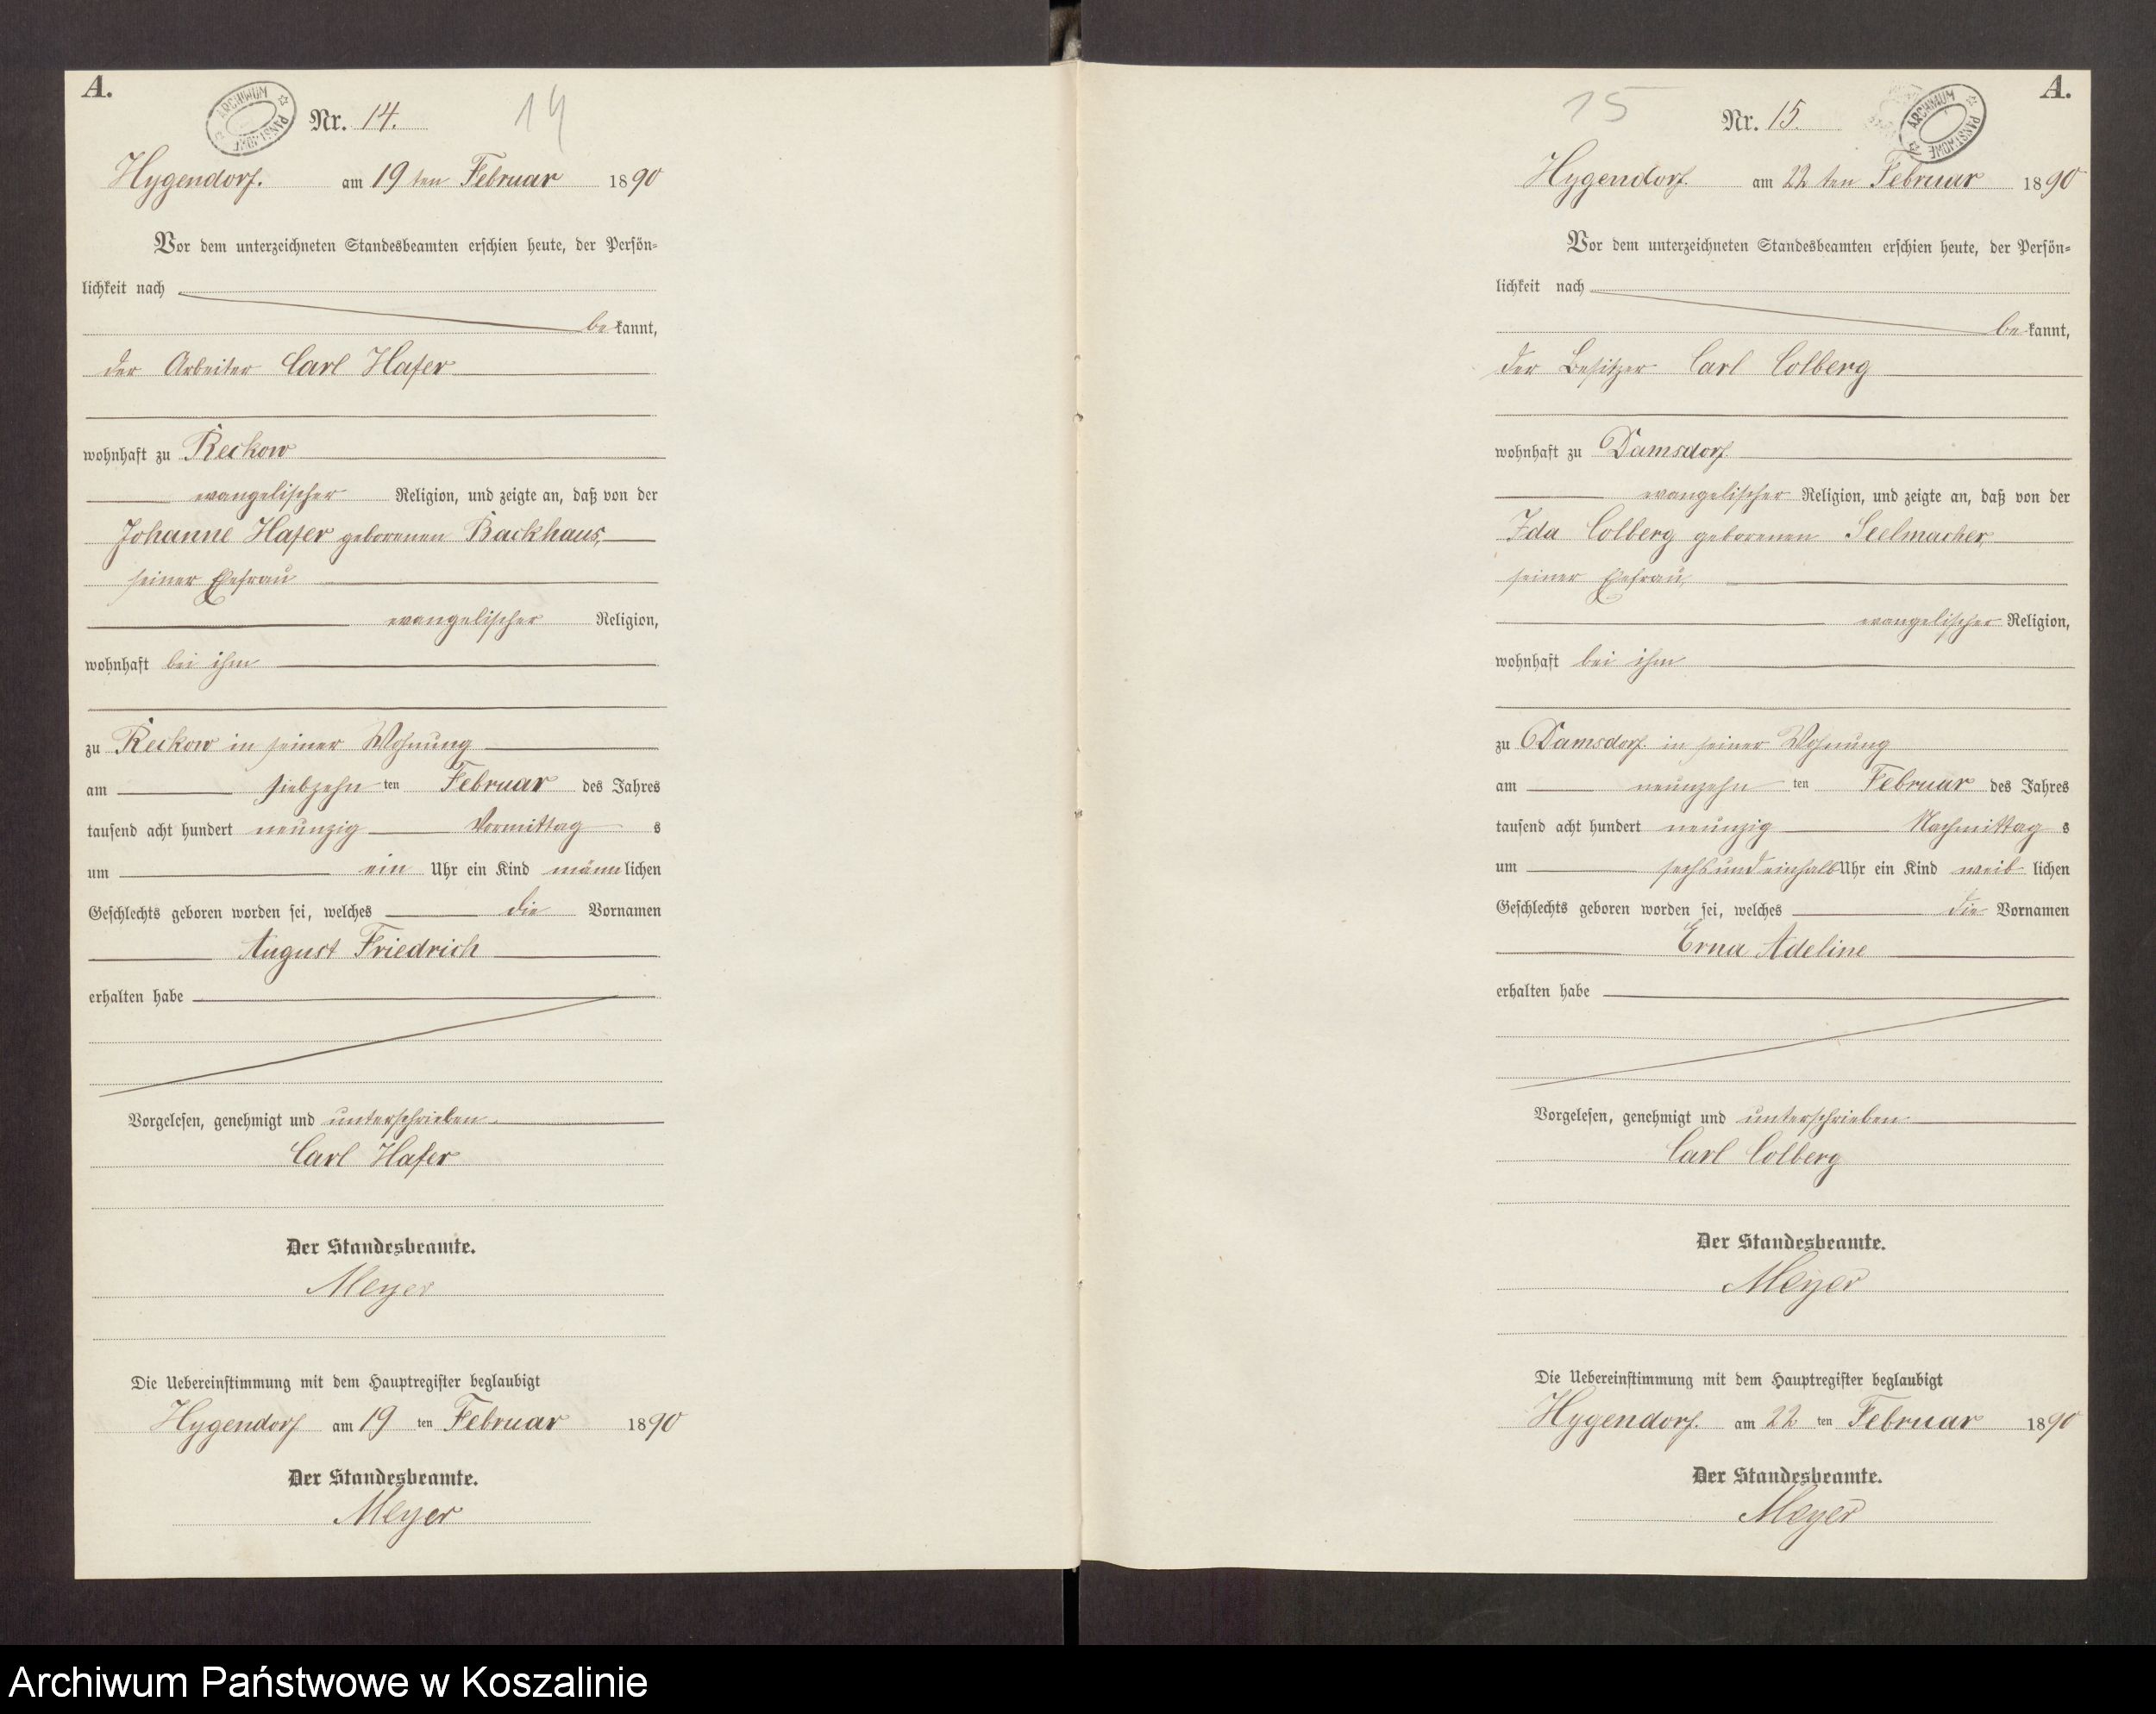 A.
ARCHIWUM PAŃSTWOWE
Nr. 14.
14
Hygendorf. am 19 ten Februar 1890
Vor dem unterzeichneten Standesbeamten erschien heute, der Persön-
lichkeit nach
be kannt,
der Arbeiter Carl Hafer
wohnhaft zu Reckow
evangelischer Religion, und zeigte an, daß von der
Johanne Hafer geborenen Backhaus,
seiner Ehefrau
evangelischer Religion,
wohnhaft bei ihm
zu Reckow in seiner Wohnung
am siebzehn ten Februar des Jahres
tausend acht hundert neunzig Vormittag s
um ein Uhr ein Kind männ lichen
Geschlechts geboren worden sei, welches die Vornamen
August Friedrich
erhalten habe
Vorgelesen, genehmigt und unterschrieben.
Carl Hafer
Der Standesbeamte.
Meyer
Die Uebereinstimmung mit dem Hauptregister beglaubigt
Hygendorf am 19 ten Februar 1890
Der Standesbeamte.
Meyer
A.
15
Nr. 15.
ARCHIWUM PAŃSTWOWE
Hygendorf. am 22 ten Februar 1890
Vor dem unterzeichneten Standesbeamten erschien heute, der Persön-
lichkeit nach
be kannt,
der Besitzer Carl Colberg
wohnhaft zu Damsdorf
evangelischer Religion, und zeigte an, daß von der
Ida Colberg geborenen Seelmacher,
seiner Ehefrau,
evangelischer Religion,
wohnhaft bei ihm
zu Damsdorf in seiner Wohnung
am neunzehn ten Februar des Jahres
tausend acht hundert neunzig Nachmittag s
um sechs und einhalb Uhr ein Kind weib lichen
Geschlechts geboren worden sei, welches die Vornamen
Erna Adeline
erhalten habe
Vorgelesen, genehmigt und unterschrieben
Carl Colberg
Der Standesbeamte.
Meyer
Die Uebereinstimmung mit dem Hauptregister beglaubigt
Hygendorf. am 22 ten Februar 1890
Der Standesbeamte.
Meyer
Archiwum Państwowe w Koszalinie